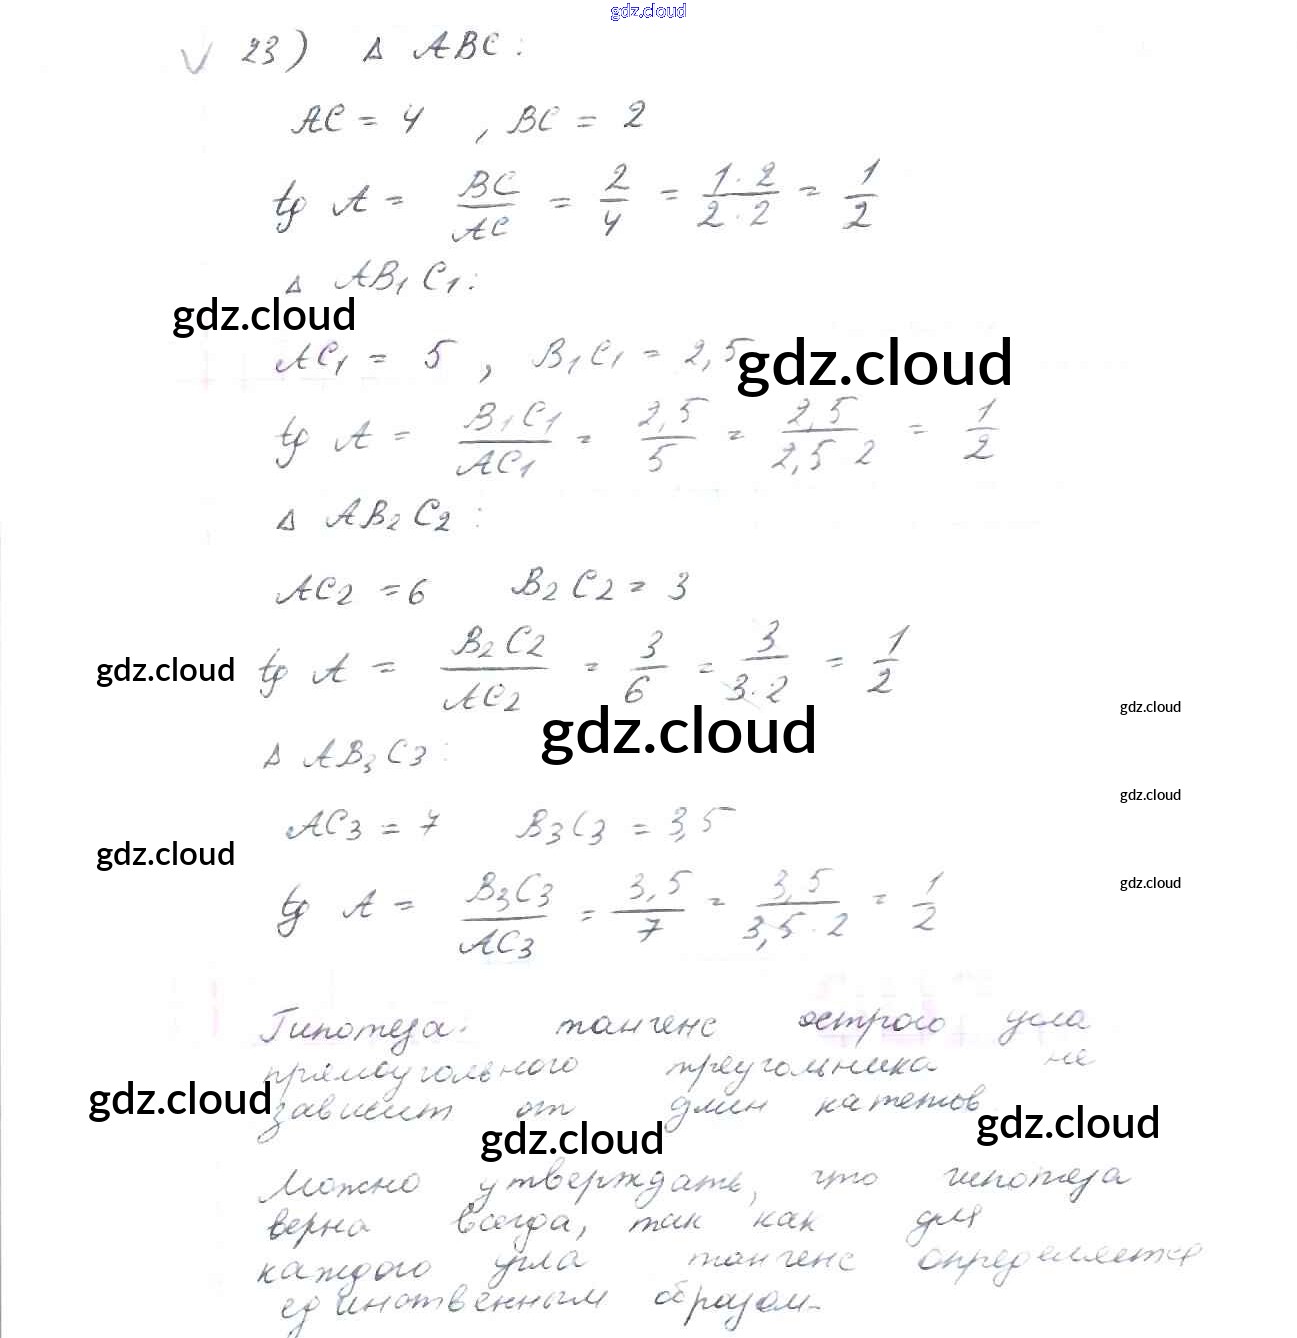 gdz.cloud
23) Δ ABC:
AC = 4 , BC = 2
tg A = BC/AC = 2/4 = 1·2/2·2 = 1/2
Δ AB₁C₁:
gdz.cloud
AC₁ = 5 , B₁C₁ = 2,5
gdz.cloud
tg A = B₁C₁/AC₁ = 2,5/5 = 2,5/2,5 2 = 1/2
Δ AB₂C₂:
AC₂ = 6 B₂C₂ = 3
tg A = B₂C₂/AC₂ = 3/6 = 3/3·2 = 1/2
gdz.cloud
gdz.cloud
gdz.cloud
Δ AB₃C₃:
gdz.cloud
AC₃ = 7 B₃C₃ = 3,5
gdz.cloud
gdz.cloud
tg A = B₃C₃/AC₃ = 3,5/7 = 3,5/3,5·2 = 1/2
Гипотеза: тангенс острого угла
прямоугольного треугольника не
зависит от длин катетов
gdz.cloud
gdz.cloud
gdz.cloud
Можно утверждать, что гипотеза
верна всегда, так как для
каждого угла тангенс определяется
единственным образом.